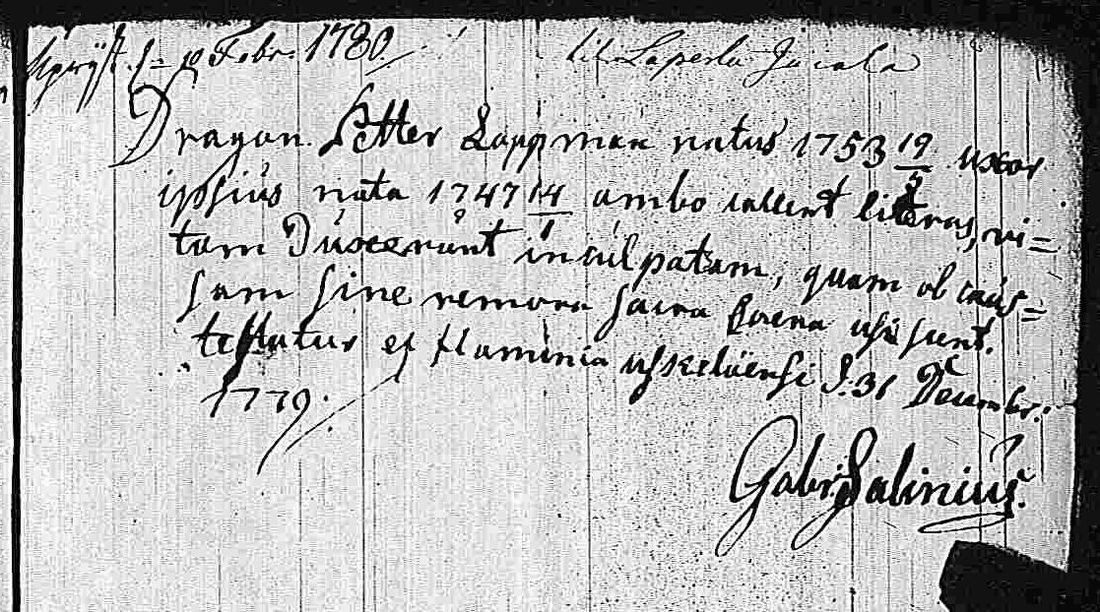 Febr. 1780. til Laperla Jacala
Dragon. Petter Lappman natus 1753 19/5 uxor
ipsius nata 1747 14/1 ambo callent literas, vi=
tam duxerunt inculpatam, quam ob caus=
sam sine remora sacra Coena usi sunt.
testatur ex flaminia Uskeläensi d: 31 Decembr.
1779.
Gabr. Salinius.